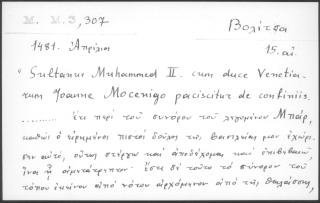 M. M. 3, 307
Βολίτσα
1481. Ἀπρίλιον
15. αἰ.
"Sultanus Muhammed II. cum duce Venetia-
rum Joanne Mocenigo paciscitur de confiniis.
......... ἔτι περὶ τοῦ συνόρου τοῦ λεγομένου Μπάρ,
καθὼς ὁ εἰρημένοι πιστοὶ δοῦλοι τῆς βασιλείας μου ἐχώρι-
σαν αὐτό, οὕτως στέργω καὶ ἀποδέχομαι καὶ ἐπιβεβαιῶ,
ἵνα ᾖ ἀμετάτρεπτον· ἔστι δὲ τοῦτο τὸ σύνορον τοῦ
τόπου ἐκείνου ἀπὸ νότου ἀρχόμενον ἀπὸ τῆς θαλάσσης,